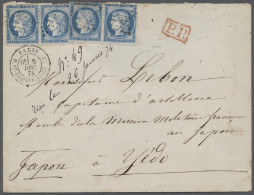 PARIS
P.D.
N° 49
26 Janvier 74
Monsieur Lebon
Capitaine d'artillerie
Membre de la Mission Militaire française
au Japon
Japon à Yédo